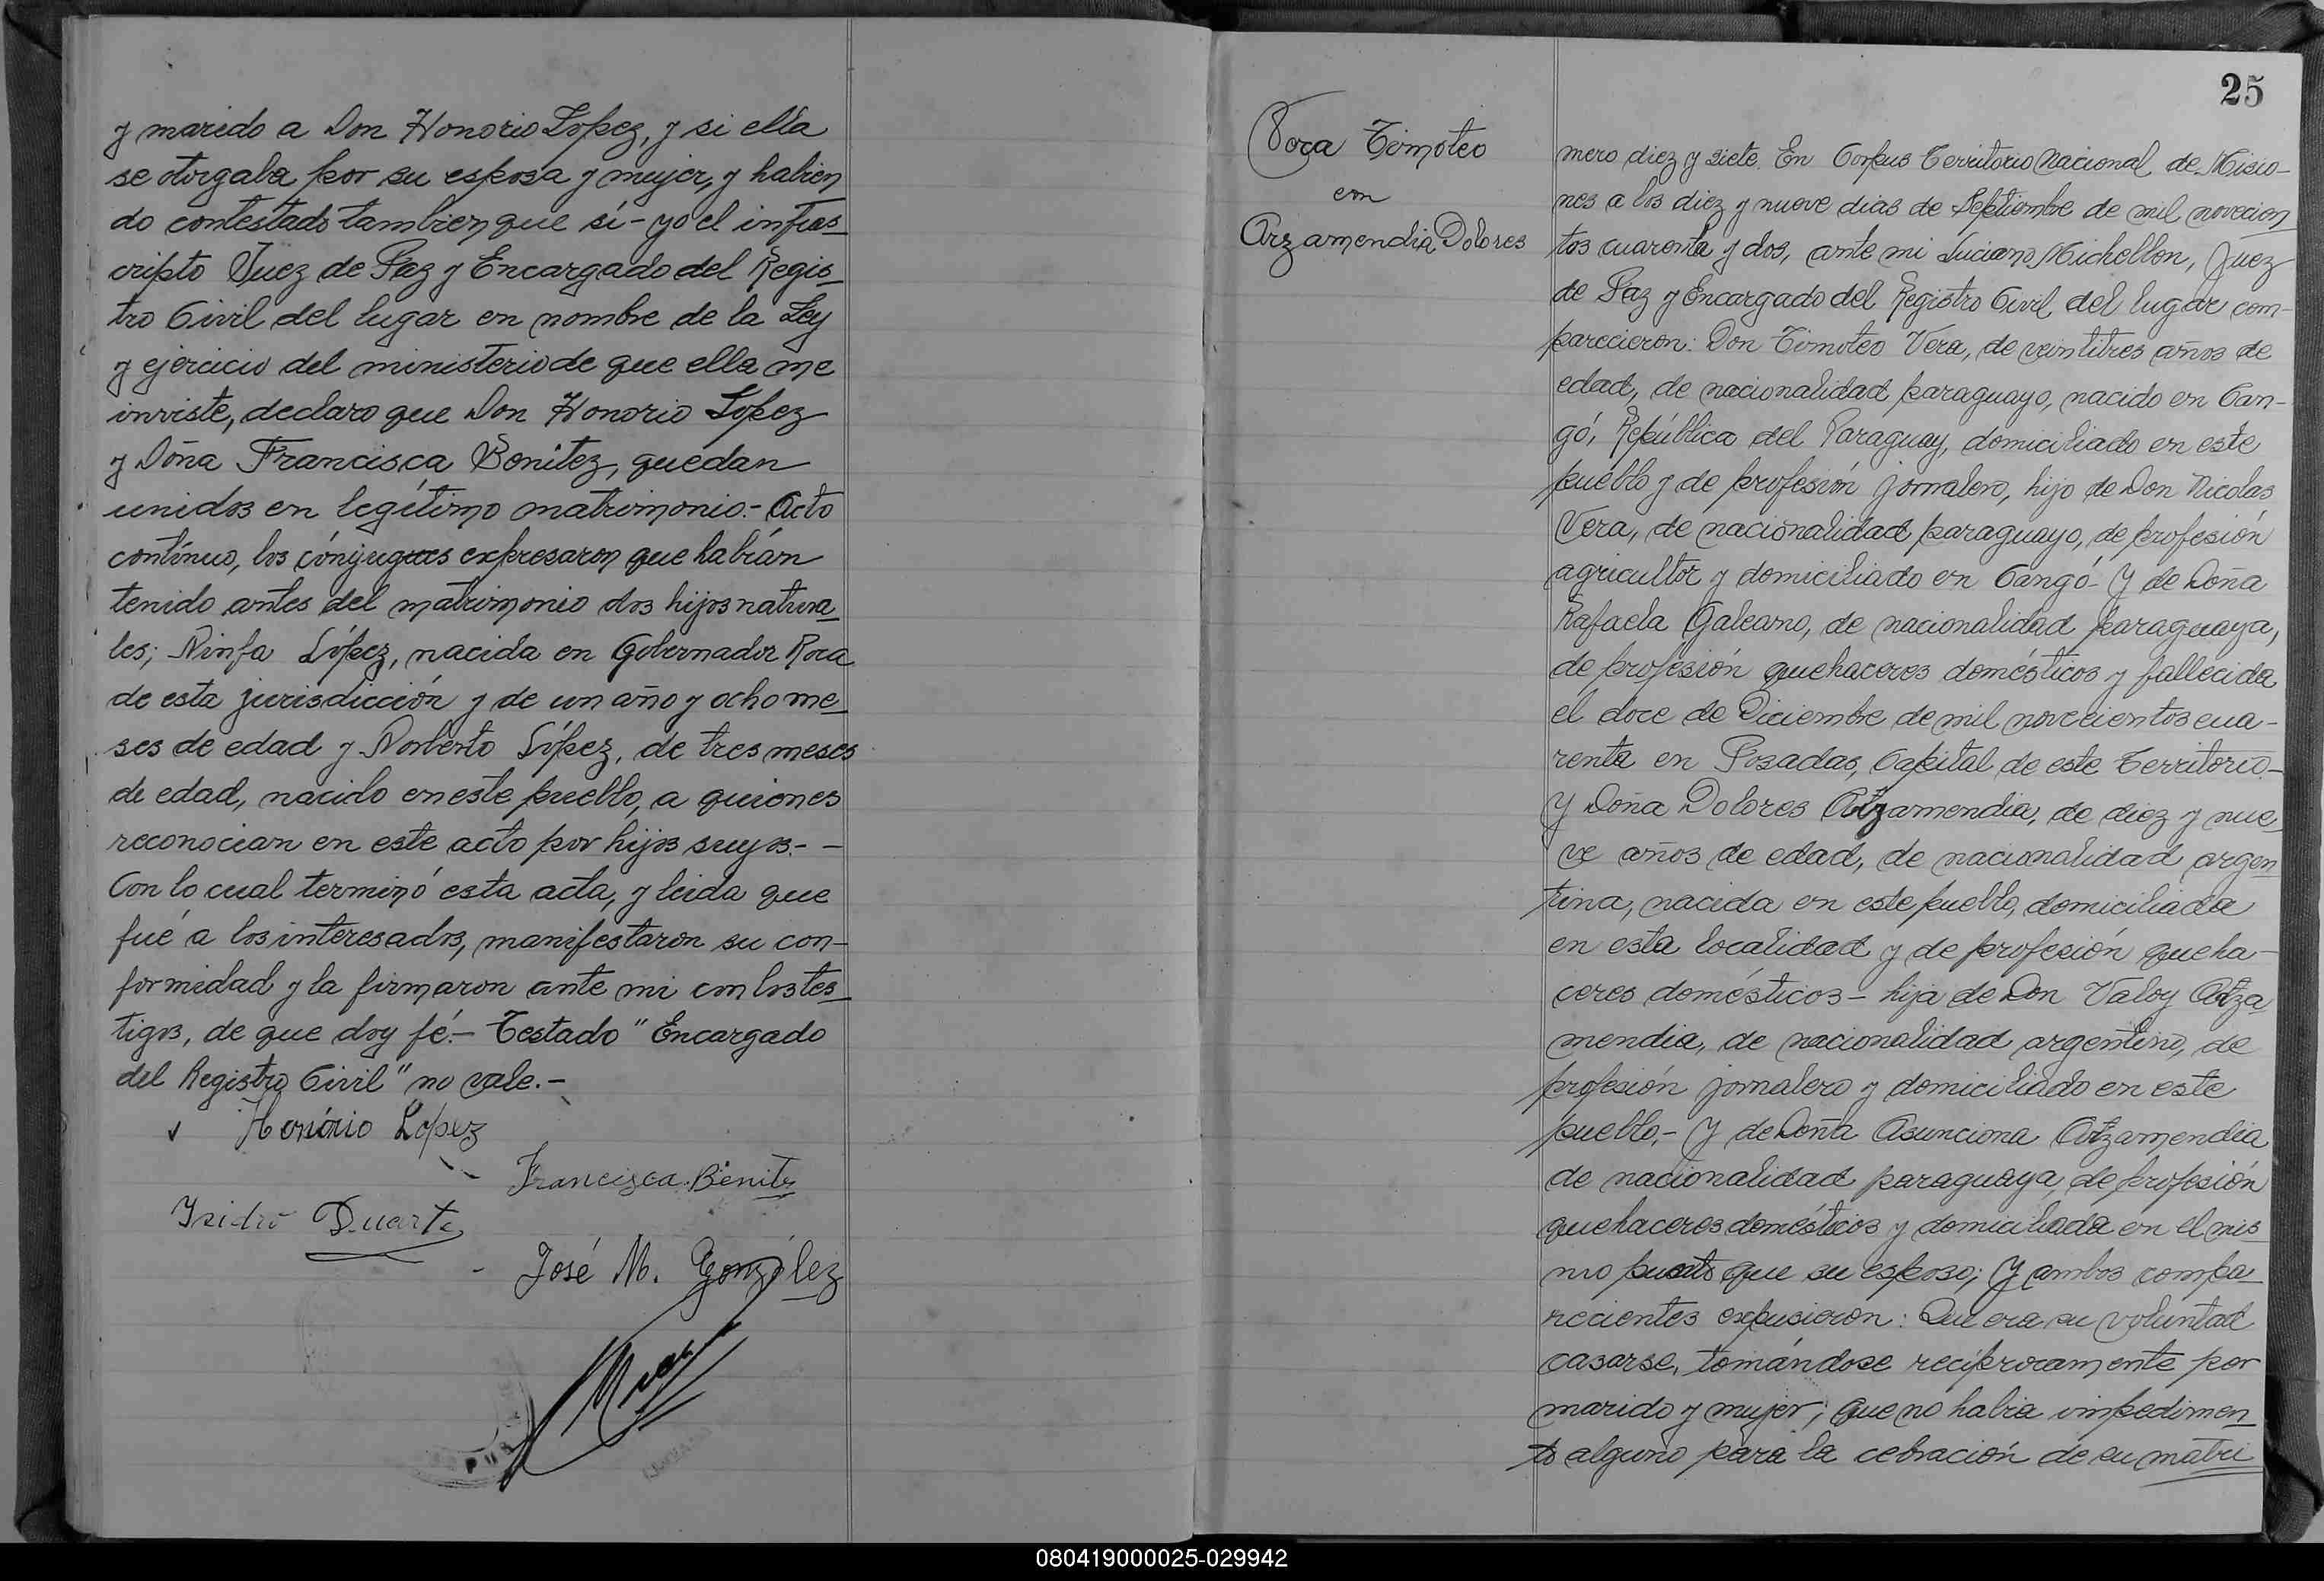 y marido a Don Honorio Lopez, y si ella
se otorgaba por su esposa y mujer, y habien
do contestado tambien que sí - yo el infras
cripto Juez de Paz y Encargado del Regis
tro Civil del lugar en nombre de la Ley
y ejercicio del ministerio de que ella me
inviste, declaro que Don Honorio Lopez
y Doña Francisca Benitez, quedan
unidos en legítimo matrimonio.- Acto
contínuo, los cónyugues expresaron que habían
tenido antes del matrimonio dos hijos natura
les; Ninfa López, nacida en Gobernador Roca
de esta jurisdicción y de un año y ocho me
ses de edad y Norberto López, de tres meses
de edad, nacido en este pueblo, a quienes
reconocian en este acto por hijos suyos.- -
Con lo cual terminó esta acta, y leida que
fué a los interesados, manifestaron su con-
formidad y la firmaron ante mi con los tes
tigos, de que doy fé.- Testado "Encargado
del Registro Civil" no vale.-
Honório López
Francisca Benitz
Isidro Duarte
José M. González
25
Vera Timoteo
con
Arzamendia Dolores
mero diez y siete. En Corpus Territorio Nacional de Misio-
nes a los diez y nueve dias de Septiembre de mil novecien
tos cuarenta y dos, ante mi Luciano Michellon, Juez
de Paz y Encargado del Registro Civil del lugar com-
parecieron: Don Timoteo Vera, de veintitres años de
edad, de nacionalidad paraguayo, nacido en Can-
gó, República del Paraguay, domiciliado en este
pueblo y de profesión jornalero, hijo de Don Nicolas
Vera, de nacionalidad paraguayo, de profesión
agricultor y domiciliado en Cangó- Y de Doña
Rafaela Galeano, de nacionalidad paraguaya,
de profesión quehaceres domésticos y fallecida
el doce de Diciembre de mil novecientos cua-
renta en Posadas, Capital de este Territorio.-
Y Doña Dolores Arzamendia, de diez y nue
ve años de edad, de nacionalidad argen
tina, nacida en este pueblo, domiciliada
en esta localidad y de profesión queha-
ceres domésticos- hija de Don Valoy Arza
mendia, de nacionalidad argentino, de
profesión jornalero y domiciliado en este
pueblo,- Y de Doña Asunciona Arzamendia
de nacionalidad paraguaya, de profesión
quehaceres domésticos y domiciliada en el mis
mo que su esposo; Y ambos compa
recientes expusieron: Que era su voluntad
casarse, tomándose recíprocamente por
marido y mujer; que no habia impedimen
to alguno para la cebración de su matri
080419000025-029942